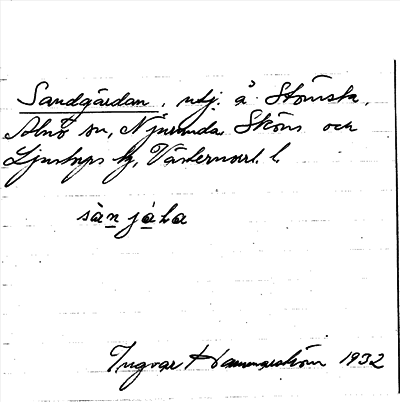 Sandgärdan, utj. å Stömsta,
Alnö sn, Njurunda Sköns och
Ljustorps tg, Västernorrl. l.
sàn jála
Ingvar Hammarström 1932